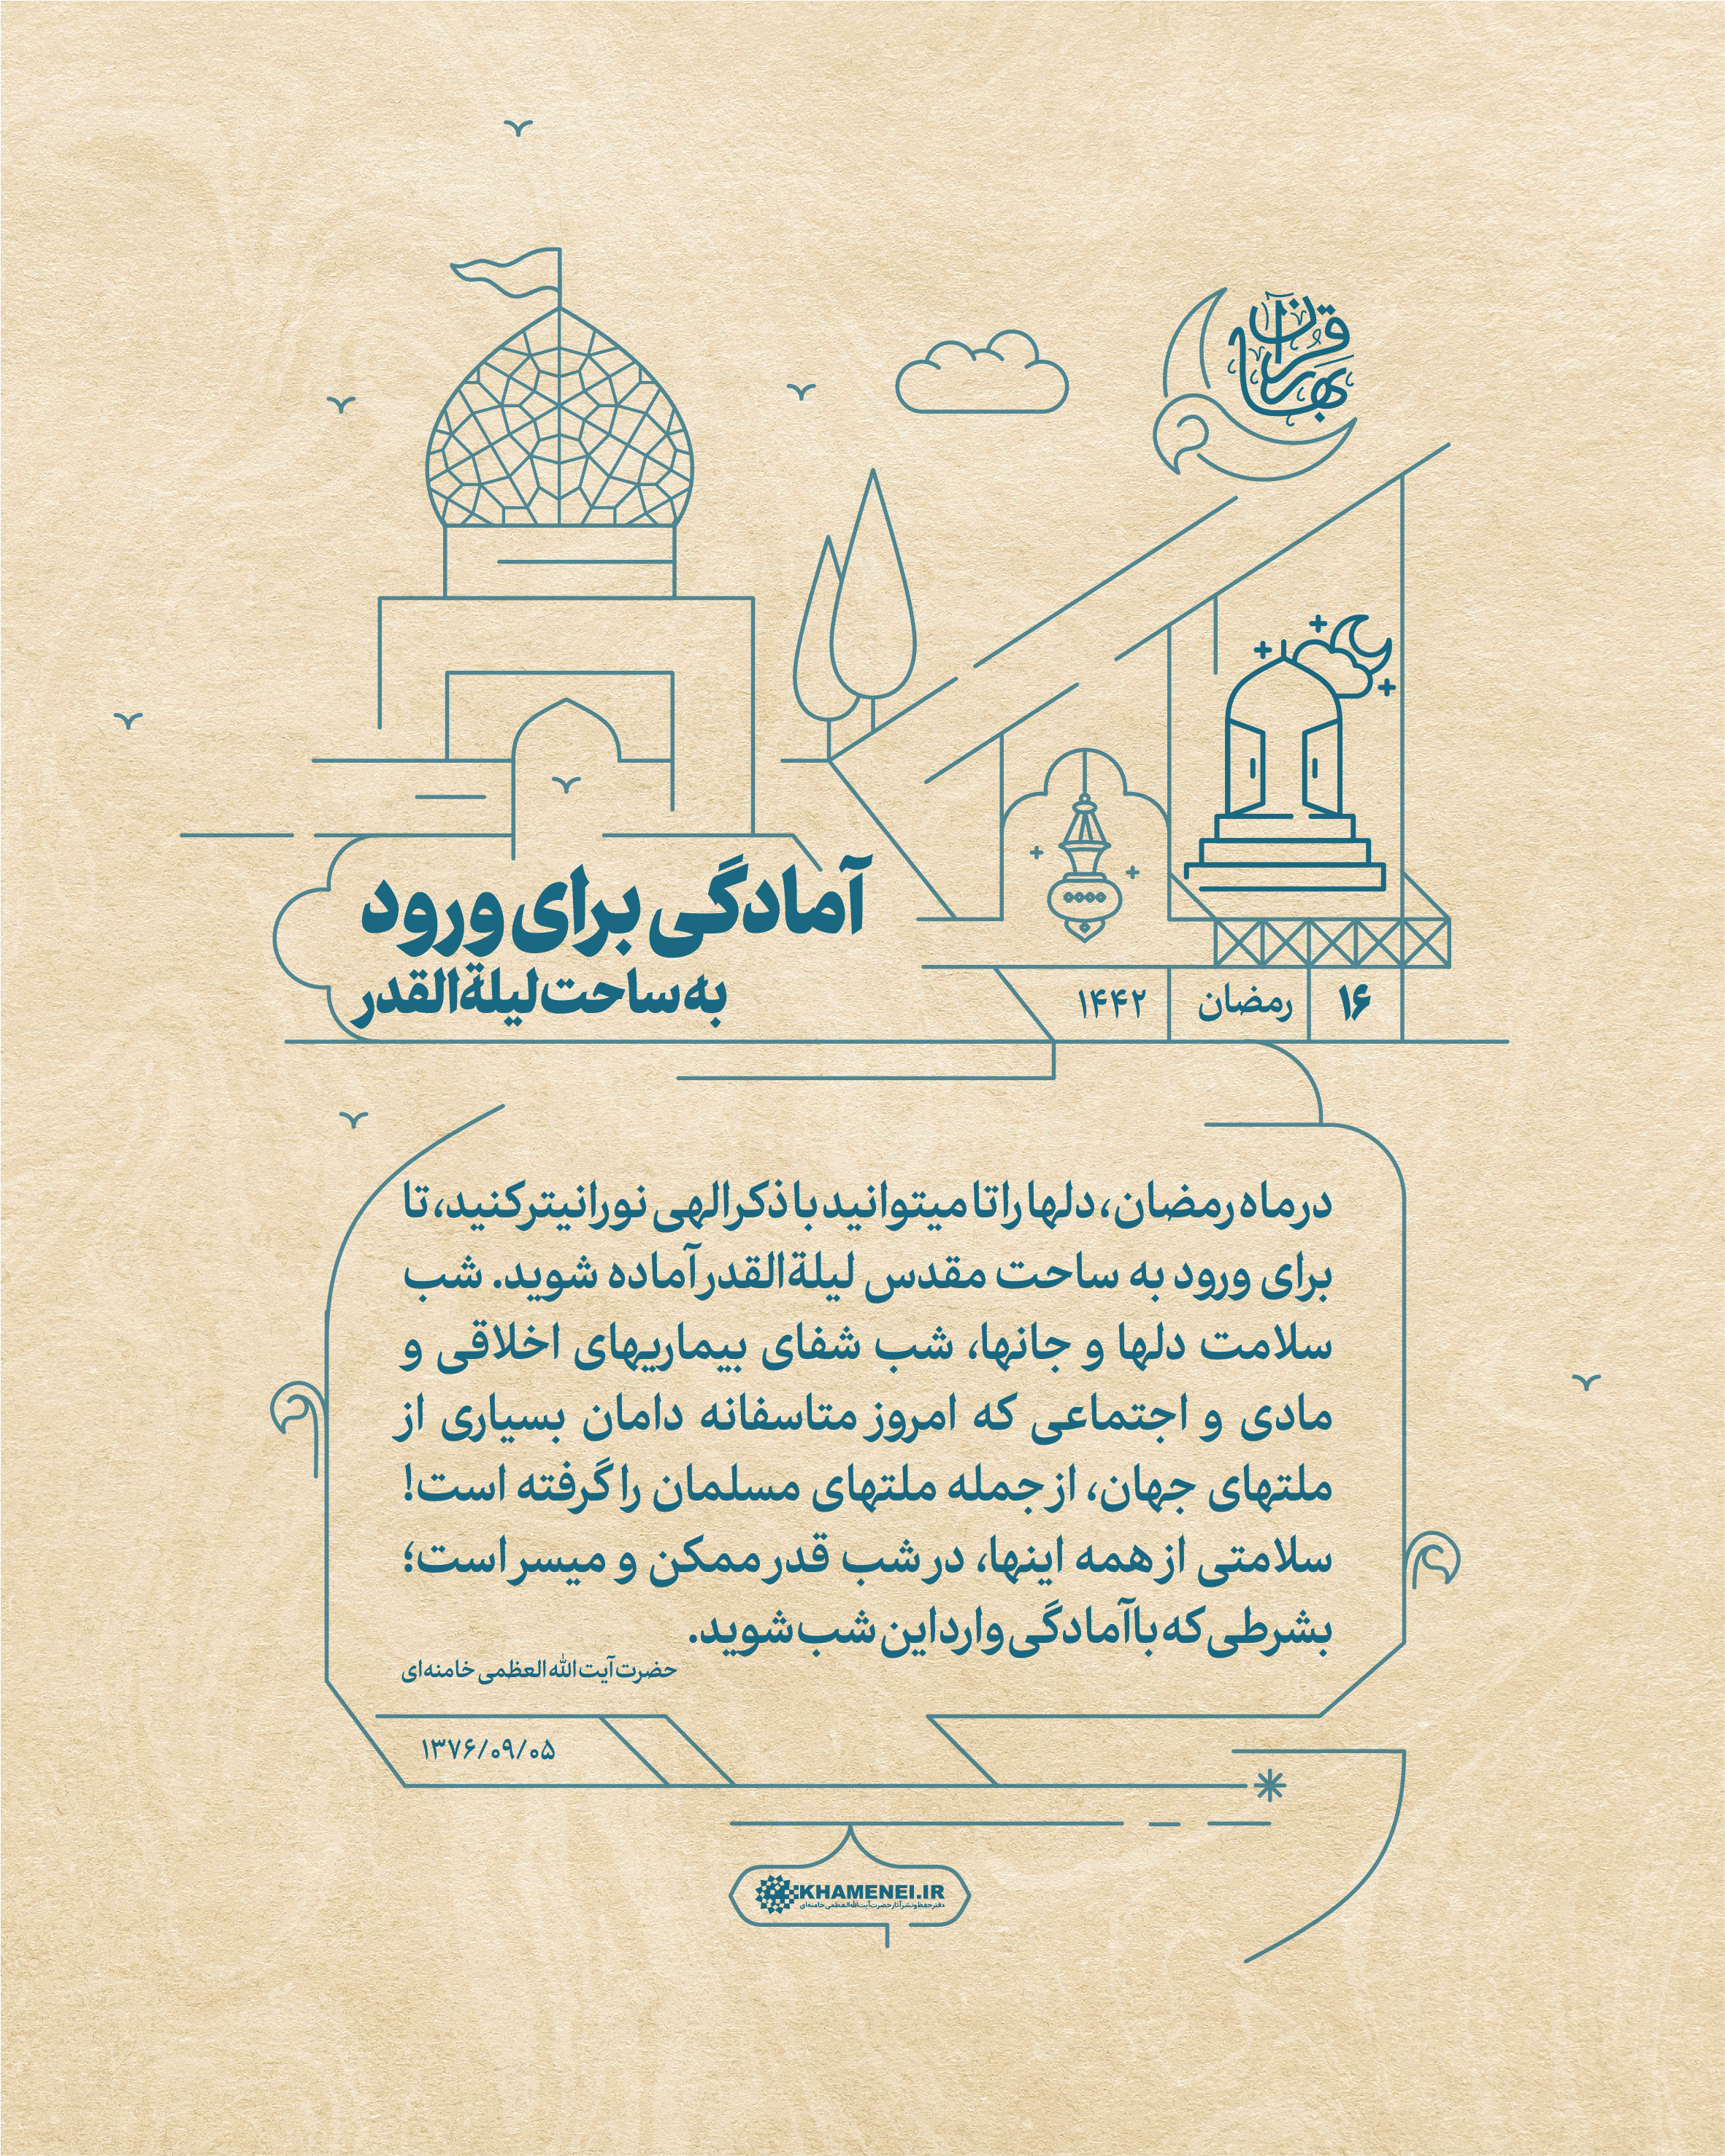 بهار قرآن
آمادگی برای ورود
به ساحت لیلةالقدر
۱۶ رمضان ۱۴۴۲
در ماه رمضان، دلها را تا میتوانید با ذکر الهی نورانیتر کنید، تا
برای ورود به ساحت مقدس لیلةالقدر آماده شوید. شب
سلامت دلها و جانها، شب شفای بیماریهای اخلاقی و
مادی و اجتماعی که امروز متاسفانه دامان بسیاری از
ملتهای جهان، از جمله ملتهای مسلمان را گرفته است!
سلامتی از همه اینها، در شب قدر ممکن و میسر است؛
بشرطی که با آمادگی وارد این شب شوید.
حضرت آیت الله العظمی خامنه‌ای
۱۳۷۶/۰۹/۰۵
KHAMENEI.IR
دفتر حفظ و نشر آثار حضرت آیت‌الله‌العظمی خامنه‌ای